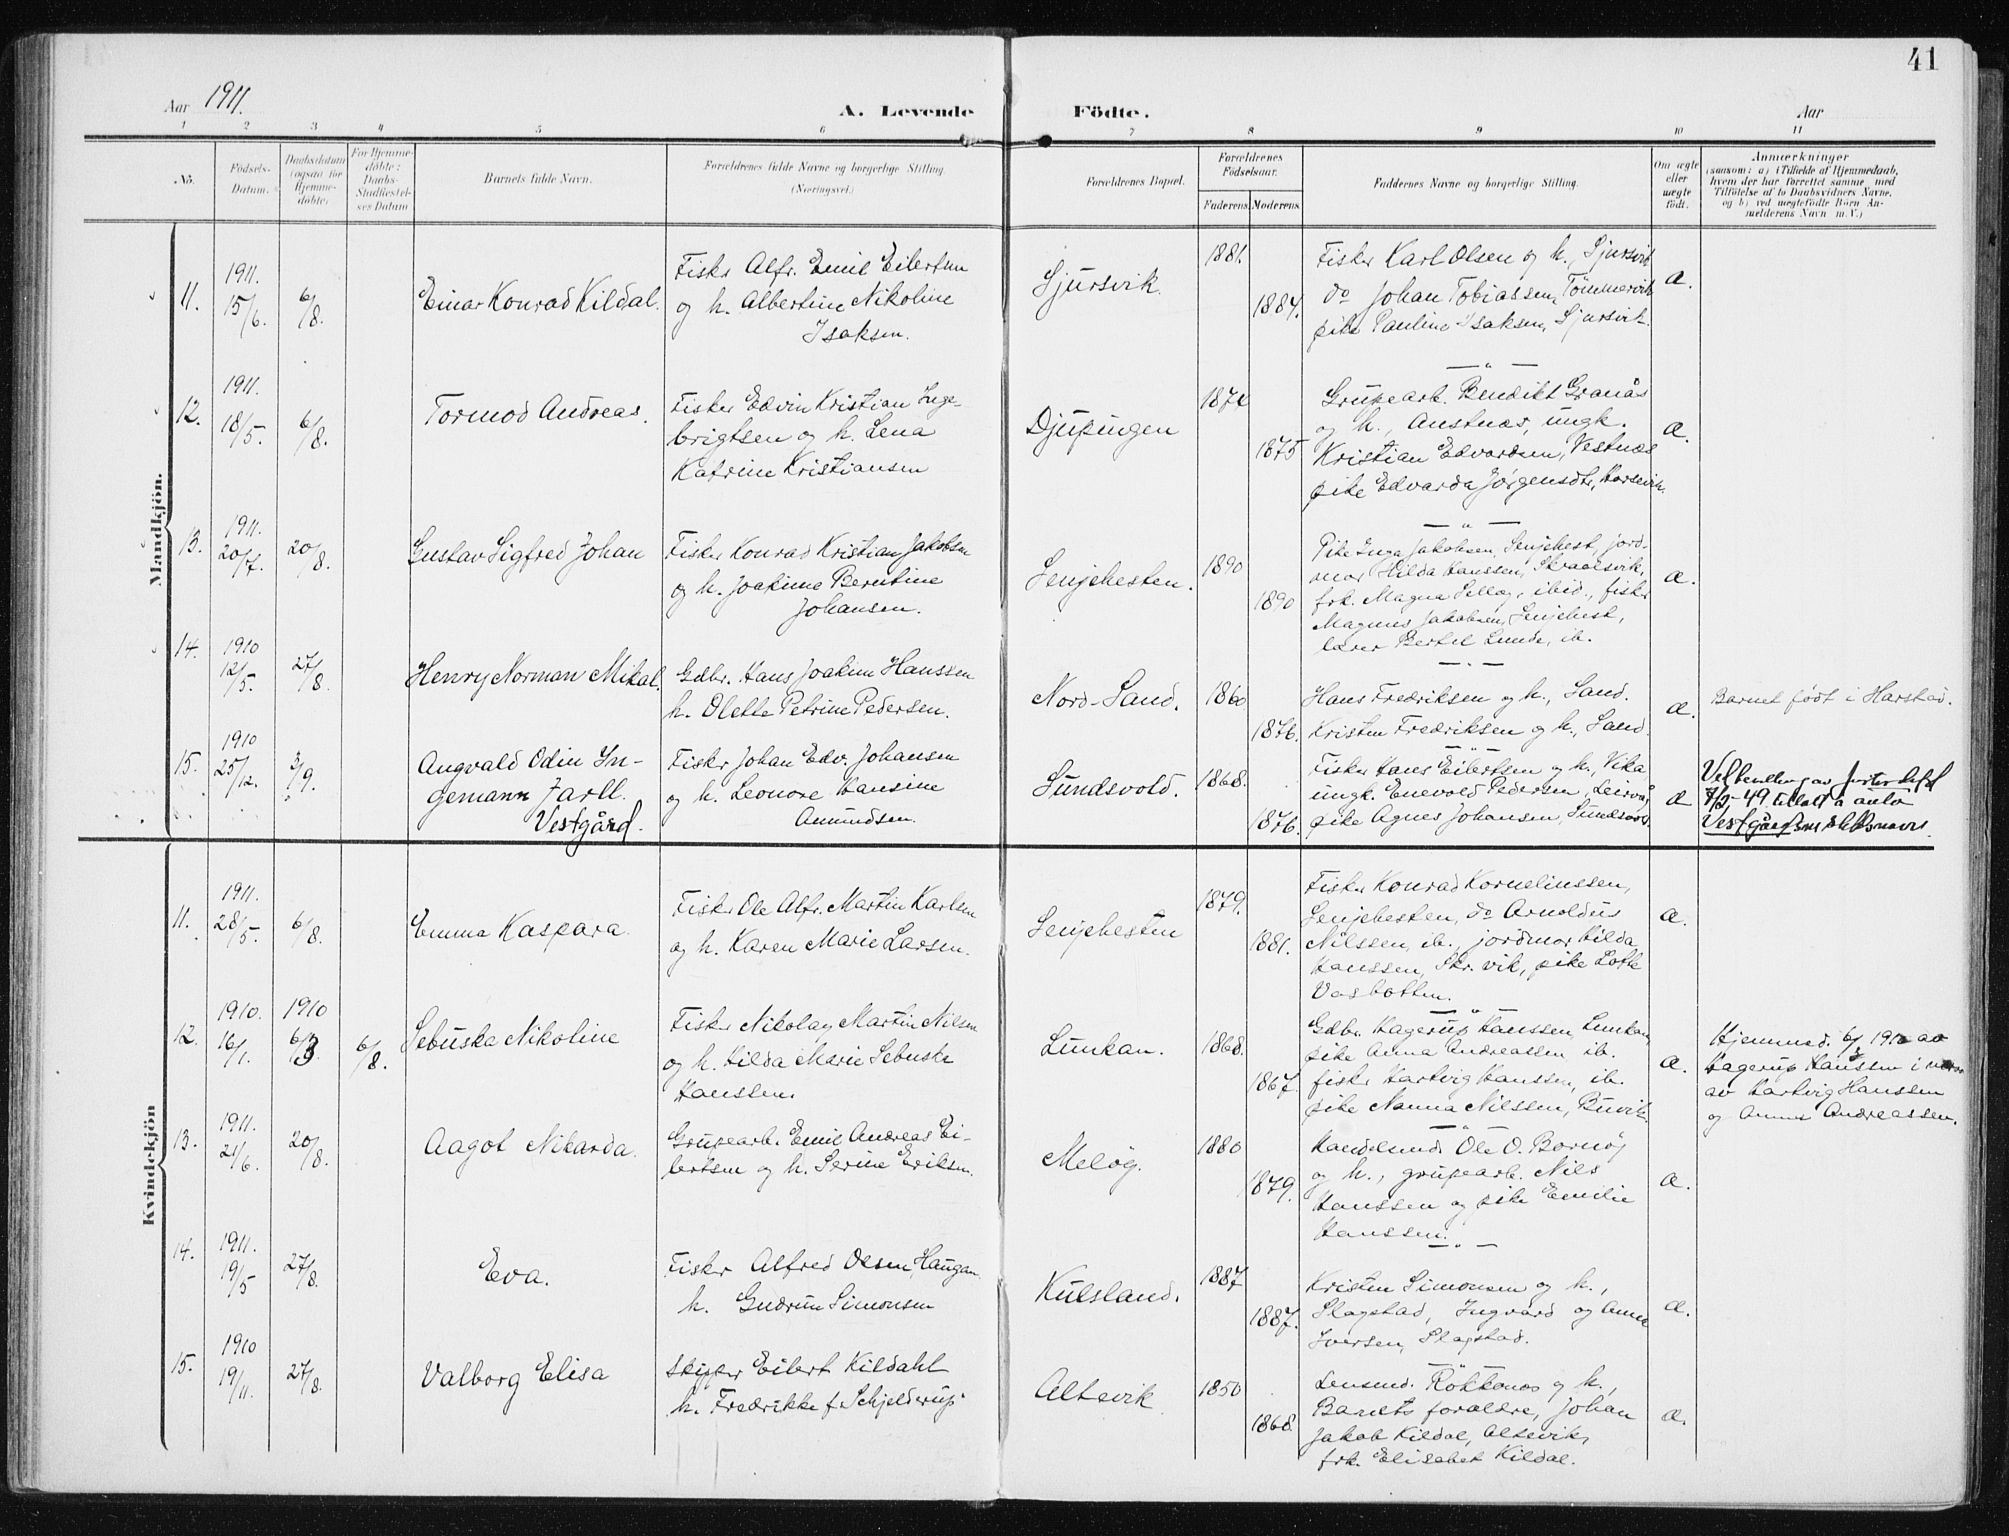 41
Aar 1911.
A. Levende Födte.
Aar
1 2 3 4 5 6 7 8 9 10 11
No.
Födsels-
Datum.
Daabsdatum
(ogsaa for
Hjemme-
döbte)
For Hjemme-
döbte:
Daabs-
Stadfæstel-
ses Datum
Barnets fulde Navn.
Forældrenes fulde Navne og borgerlige Stilling
(Næringsvei.)
Forældrenes Bopæl.
Forældrenes
Födselsaar.
Faderens Moderens
Faddernes Navne og borgerlige Stilling.
Om ægte
eller
uægte
födt.
Anmærkninger
(saasom: a) i Tilfælde af Hjemmedaab,
hvem der har forrettet samme med
Tilföielse af to Daabsvidners Navne,
og b) ved uægtefödte Börn An-
melderens Navn m.V.)
Mandkjön.
11.
1911.
15/6.
6/8.
Einar Konrad Kildal.
Fisker Alfr. Emil Eilertsen
og h. Albertine Nikoline
Isaksen.
Sjursvik.
1881.
1884.
Fisker Karl Olsen og h., Sjursvik
do Johan Tobiassen, Tömmervik
pike Pauline Isaksen, Sjursvik.
a.
12.
1911.
18/5.
6/8.
Tormod Andreas.
Fisker Edvin Kristian Inge-
brigtsen og h. Lena
Katrine Kristiansen
Djupingen
1874
1875
Grupearb. Bendikt Granås
og h., Austnæs, ungk.
Kristian Edvardsen, Vestnæs
pike Edvarda Jörgensdtr,
a.
13.
1911.
20/7.
20/8.
Gustav Sigfred Johan
Fisker Konrad Kristian Jakobsen
og h. Joakime Berntine
Johansen.
Senjehesten.
1890
1890
Pike Inga Jakobsen, Senjehest, jord-
mor Hilda Hanssen,
frk. Magna ibid., fisker
Magnus Jakobsen, Senjehest,
lærer Bertel Lunde, ib.
a.
14.
1910
12/5.
27/8.
Henry Norman Mikal.
Gdbr. Hans Joakim Hanssen
h. Olette Petrine Pedersen.
Nord-Sand.
1860
1876.
Hans Fredriksen og h., Sand.
Kristen Fredriksen og h., Sand.
a.
Barnet födt i Harstad.
15.
1910
25/12.
3/9.
Angvald Odin In-
gemann Jarll.
Vestgård.
Fisker Johan Edv. Johansen
og h. Leonore Hansine
Amundsen.
Sundsvold.
1868.
1876.
Fisker Hans Eilertsen og h., Vika
ungk. Enevold Pedersen,
pike Agnes Johansen, Sundsvold
a
Kvindekjön
11.
1911.
28/5.
6/8.
Emma Kaspara
Fisker Ole Alfr. Martin Karlsen
og h. Karen Marie Larsen.
Senjehesten
1879.
1881.
Fisker Konrad Korneliussen,
Senjehesten, do Arnoldus
Nilssen, ib., jordmor Hilda
Hanssen, Skr. vik, pike Lotte
Vasbotten.
a.
12.
1910.
16/1.
1910
6/3
6/8.
Sebuska Nikoline
Fisker Nikolay Martin Nilsen
og h. Hilda Marie Sebuska
Hanssen.
Lunkan.
1868.
1867
Gdbr. Hagerup Hanssen, Lunkan,
pike Anna Andreassen ib.
fisker Hartvig Hanssen, ib.
pike Nanna Nilssen, Buvik.
a.
Hjemmed. 6/3 1910 av
Hagerup Hanssen i nærv
av Hartvig Hanssen
og Anna Andreassen.
13.
1911.
21/6.
20/8.
Aagot Nikarda.
Grupearb. Emil Andreas Ei-
lertsen og h. Serine Eriksen.
Melög.
1880
1879.
Handelsmd. Ole O.
og h., grupearb. Nils
Hanssen og pike Emilie
Hanssen.
a.
14.
1911.
19/5
27/8.
Eva.
Fisker Alfred Olsen Haugan
h. Gudrun Simonsen
Kulsland.
1887
1887.
Kristen Simonsen og h.,
Slagstad, Ingvard og Anna
Iversen, Slagstad.
a.
15.
1910
19/11.
27/8.
Valborg Elisa
Skipper Eilert Kildahl
h. Fredrikke f. Schjelderup
Altevik
1850
1868.
Lensmd. Rökkenæs og h.,
Barnets forældre, Johan
Jakob Kildal, Altevik,
frk. Elisabet Kildal.
a.